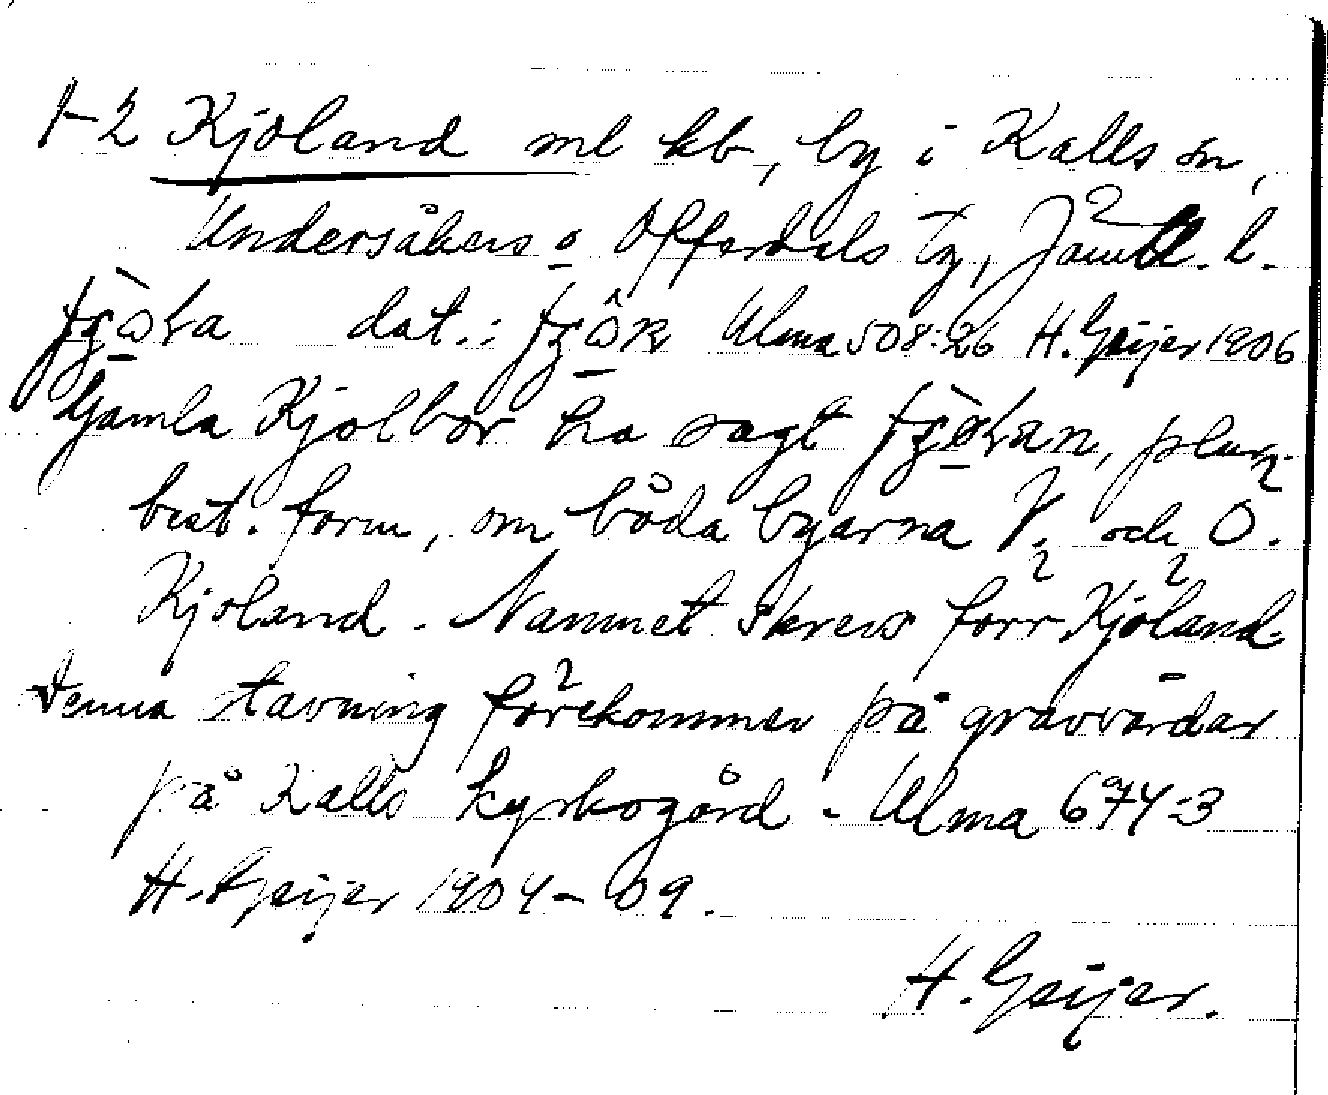 1-2 Kjoland ml kb, by i Kalls sn,
Undersåkers o Offerdals tg, Jämtl. l.
dat.: Ulma 508:26 H. Geijer 1906
Gamla Kjolbor ha sagt plur.
best. form, om båda byarna V. och Ö.
Kjoland. Namnet skrevs förr Kjöland.
Denna stavning förekommer på gravvårdar
på Kalls kyrkogård. Ulma 674:3
H. Geijer 1904-09.
H. Geijer.